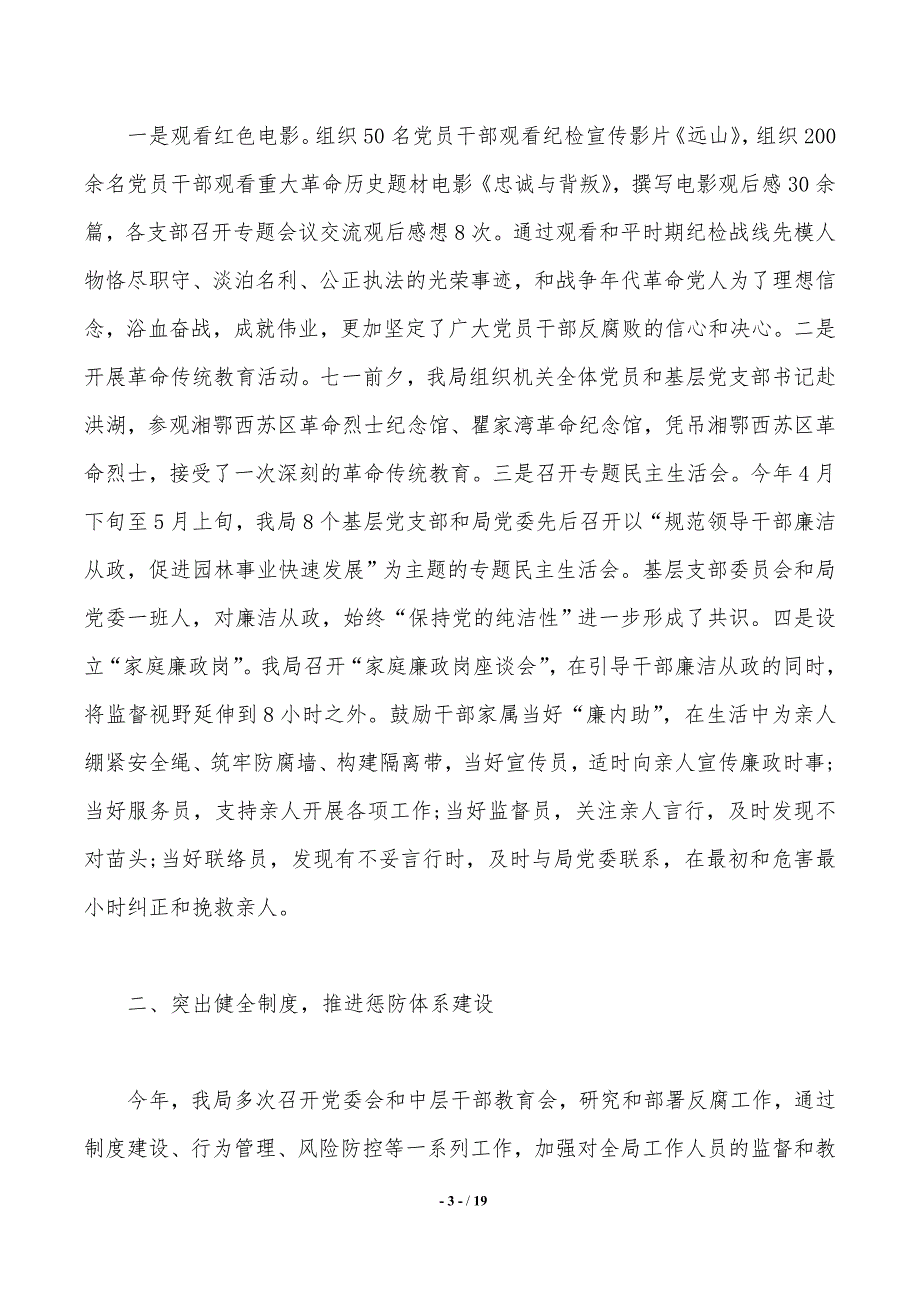 一是观看红色电影。组织 50 名党员干部观看纪检宣传影片《远山》，组织 200
余名党员干部观看重大革命历史题材电影《忠诚与背叛》，撰写电影观后感 30 余
篇，各支部召开专题会议交流观后感想 8 次。通过观看和平时期纪检战线先模人
物恪尽职守、淡泊名利、公正执法的光荣事迹，和战争年代革命党人为了理想信
念，浴血奋战，成就伟业，更加坚定了广大党员干部反腐败的信心和决心。二是
开展革命传统教育活动。七一前夕，我局组织机关全体党员和基层党支部书记赴
洪湖，参观湘鄂西苏区革命烈士纪念馆、瞿家湾革命纪念馆，凭吊湘鄂西苏区革
命烈士，接受了一次深刻的革命传统教育。三是召开专题民主生活会。今年 4 月
下旬至 5 月上旬，我局 8 个基层党支部和局党委先后召开以“规范领导干部廉洁
从政，促进园林事业快速发展”为主题的专题民主生活会。基层支部委员会和局
党委一班人，对廉洁从政，始终“保持党的纯洁性”进一步形成了共识。四是设
立“家庭廉政岗”。我局召开“家庭廉政岗座谈会”，在引导干部廉洁从政的同时，
将监督视野延伸到 8 小时之外。鼓励干部家属当好“廉内助”，在生活中为亲人
绷紧安全绳、筑牢防腐墙、构建隔离带，当好宣传员，适时向亲人宣传廉政时事;
当好服务员，支持亲人开展各项工作;当好监督员，关注亲人言行，及时发现不
对苗头;当好联络员，发现有不妥言行时，及时与局党委联系，在最初和危害最
小时纠正和挽救亲人。
二、突出健全制度，推进惩防体系建设
今年，我局多次召开党委会和中层干部教育会，研究和部署反腐工作，通过
制度建设、行为管理、风险防控等一系列工作，加强对全局工作人员的监督和教
- 3 - / 19